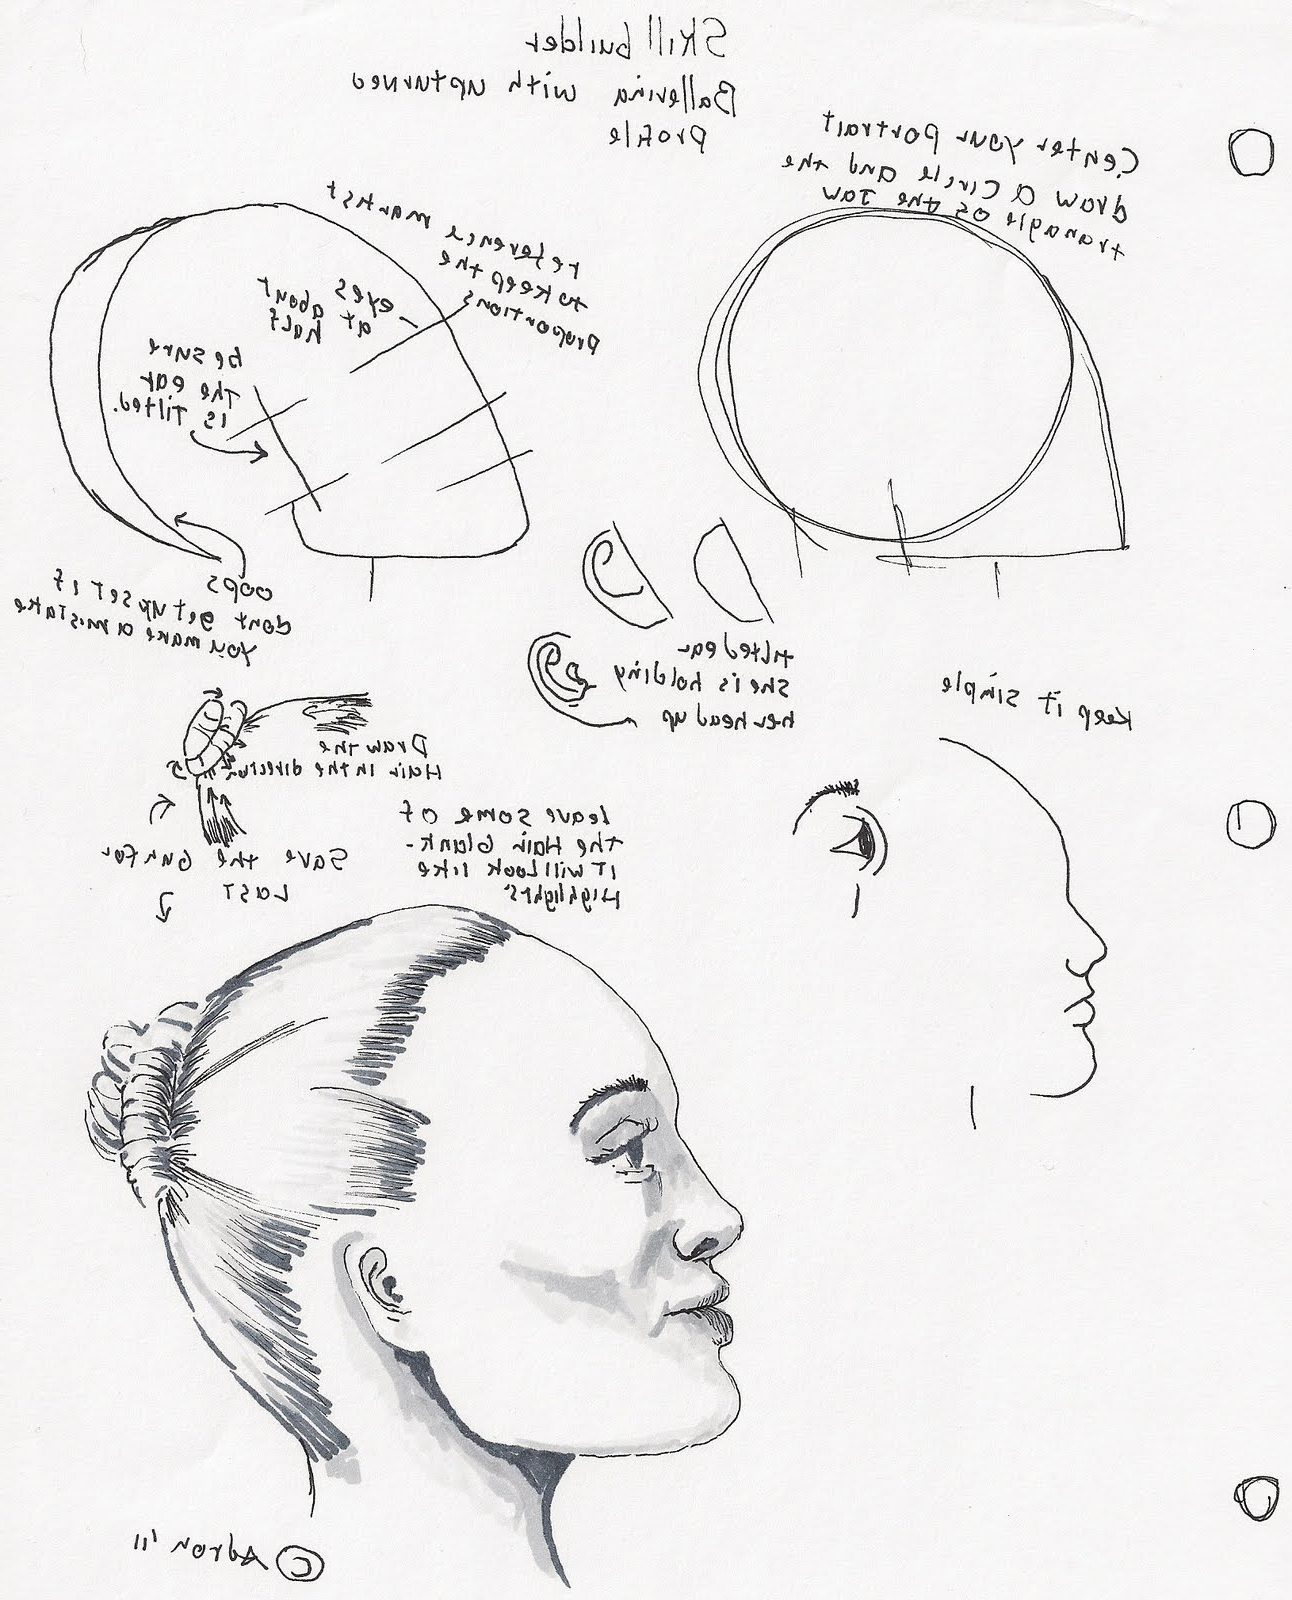 Skill builder
Ballerina with upturned
Profile
Center your portrait
draw a circle and the
tranagle of the Jaw
reference marks t
to keep the
proportions
eyes
at about
half
be sure
the ear
is tilted.
oops
dont get upset if
you make a mistake
tilted ear
she is holding
her head up
Keep it simple
Draw the
Hair in the direction
leave some of
the Hair blank -
it will Look like
Highlights
Save the bun for
Last
© Adron '11